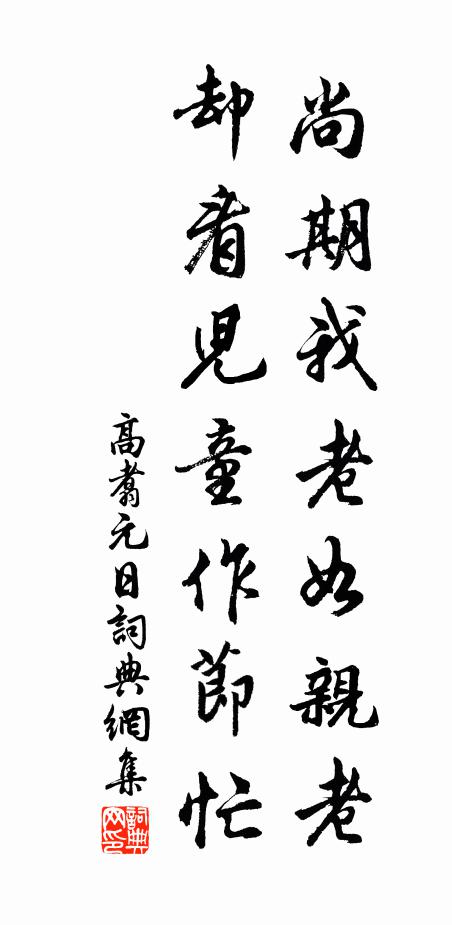 尚期我老如親老
却看兒童作節忙
高翥元日詞典網集
詞典网印